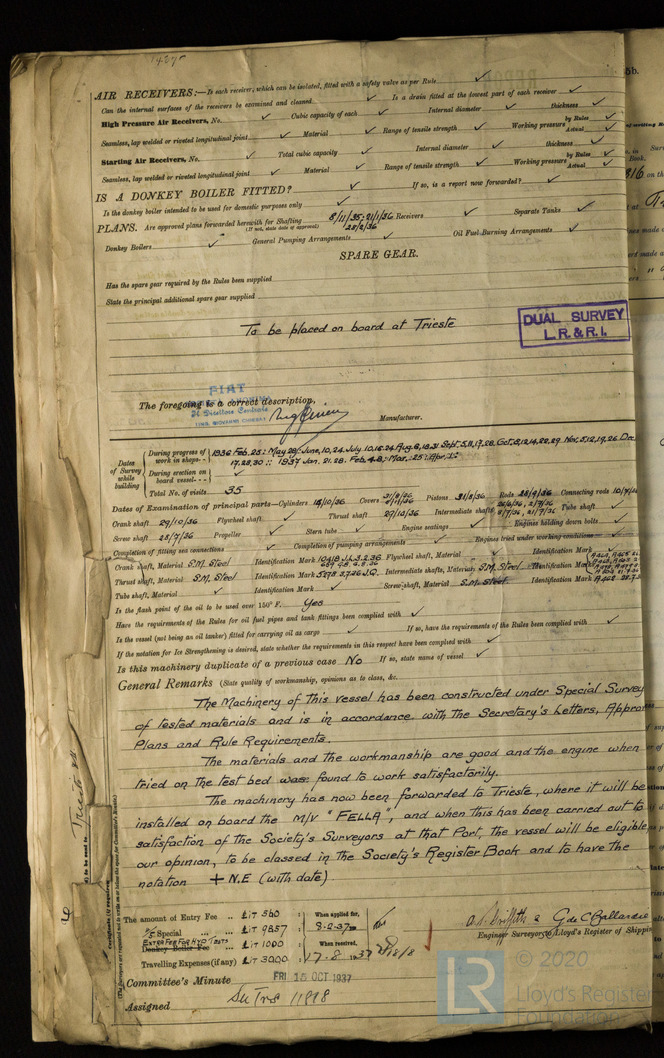 AIR RECEIVERS:—Is each receiver, which can be isolated, fitted with a safety valve as per Rule ✓
Can the internal surfaces of the receivers be examined and cleaned ✓ Is a drain fitted at the lowest part of each receiver ✓
High Pressure Air Receivers, No. ✓ Cubic capacity of each ✓ Internal diameter ✓ thickness ✓
Seamless, lap welded or riveted longitudinal joint ✓ Material ✓ Range of tensile strength ✓ Working pressure by Rules ✓ Actual ✓
Starting Air Receivers, No. ✓ Total cubic capacity ✓ Internal diameter ✓ thickness ✓
Seamless, lap welded or riveted longitudinal joint ✓ Material ✓ Range of tensile strength ✓ Working pressure by Rules ✓ Actual ✓
IS A DONKEY BOILER FITTED? ✓ If so, is a report now forwarded? ✓
Is the donkey boiler intended to be used for domestic purposes only ✓
PLANS. Are approved plans forwarded herewith for Shafting 8/11/35: 21/1/36 Receivers ✓ Separate Tanks ✓
(If not, state date of approval) 25/2/36
Donkey Boilers ✓ General Pumping Arrangements ✓ Oil Fuel Burning Arrangements ✓
SPARE GEAR.
Has the spare gear required by the Rules been supplied
State the principal additional spare gear supplied
To be placed on board at Trieste
DUAL SURVEY
L.R. & R.I.
FIAT
The foregoing is a correct description,
Il Direttore Centrale
Manufacturer.
Dates of Survey while building
During progress of work in shops - - 1936 Feb. 25: May 28: June, 10, 24. July 10.16.24. Aug. 6, 18.31 Sept. 5.11, 17.28. Oct. 8, 12.14.22.29 Nov. 5.12.19.26 Dec
During erection on board vessel - - - 17.23.30 :: 1937 Jan. 21. 28. Feb. 4.8, : Mar. 25 : Apr. 1 ::
Total No. of visits 35
Dates of Examination of principal parts—Cylinders 15/10/36 Covers Pistons 31/8/36 Rods 28/9/36 Connecting rods
Crank shaft 29/10/36 Flywheel shaft ✓ Thrust shaft 29/10/36 Intermediate shafts 2/7/36, 21/7/36 Tube shaft ✓
Screw shaft 28/7/36 Propeller ✓ Stern tube ✓ Engine seatings ✓ Engines holding down bolts ✓
Completion of fitting sea connections ✓ Completion of pumping arrangements ✓ Engines tried under working conditions ✓
Crank shaft, Material S.M. Steel Identification Mark 10418 J.L. 3.2.36 Flywheel shaft, Material ✓ Identification Mark ✓
Thrust shaft, Material S.M. Steel Identification Mark 5278 3.7.36 J.Q. Intermediate shafts, Material S.M. Steel Identification Mark
Tube shaft, Material ✓ Identification Mark ✓ Screw shaft, Material S.M. Steel Identification Mark
Is the flash point of the oil to be used over 150° F. Yes
Have the requirements of the Rules for oil fuel pipes and tank fittings been complied with ✓
Is the vessel (not being an oil tanker) fitted for carrying oil as cargo ✓ If so, have the requirements of the Rules been complied with ✓
If the notation for Ice Strengthening is desired, state whether the requirements in this respect have been complied with ✓
Is this machinery duplicate of a previous case No If so, state name of vessel ✓
General Remarks (State quality of workmanship, opinions as to class, &c.
The Machinery of this vessel has been constructed under Special Survey
of tested materials and is in accordance with the Secretary's Letters, Approv
Plans and Rule Requirements.
The materials and the workmanship are good and the engine when
tried on the test bed was found to work satisfactorily.
The machinery has now been forwarded to Trieste, where it will be
installed on board the M/V "FELLA", and when this has been carried out to
satisfaction of the Society's Surveyors at that Port, the vessel will be eligible
our opinion, to be classed in the Society's Register Book and to have the
notation + N.E (with date)
The amount of Entry Fee .. Lit 560 : When applied for,
2/5 Special .. .. Lit 9857 : 8-2-37
EXTRA FEE FOR HYD TESTS
Donkey Boiler Fee Lit 1000 : When received,
Travelling Expenses (if any) Lit 3000 : 17-8-1937
A. Griffith & G de C Ballardie
Engineer Surveyors to Lloyd's Register of Shippin
Committee's Minute FRI 15 OCT 1937
Assigned See Trs 11898
LR
© 2020
Lloyd's Register
Foundation